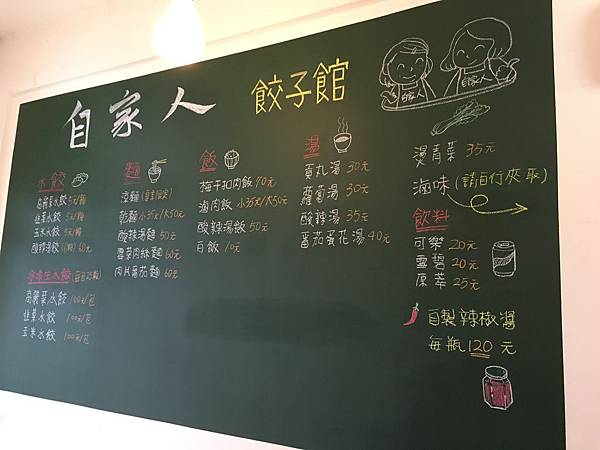 自家人 餃子館
自家人
自家人
水餃
高麗菜水餃 5元/顆
韭菜水餃 5元/顆
玉米水餃 5元/顆
酸辣湯餃 60元
生水餃
高麗菜水餃 100元/包
韭菜水餃 100元/包
玉米水餃 100元/包
麵
涼麵
乾麵 小35元/大50元
酸辣湯麵 50元
雪菜肉絲麵 60元
肉片番茄麵 60元
飯
梅干扣肉飯 70元
滷肉飯 小35元/大50元
酸辣湯飯 50元
白飯 10元
湯
貢丸湯 30元
蘿蔔湯 30元
酸辣湯 35元
番茄蛋花湯 40元
燙青菜 35元
滷味 (請自行夾取)
飲料
可樂 20元
雪碧 20元
原萃 25元
自製辣椒醬
每瓶120元